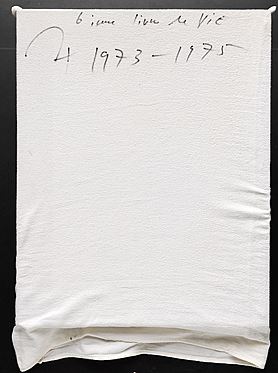 6 ieme livre de Vie
1973 - 1975